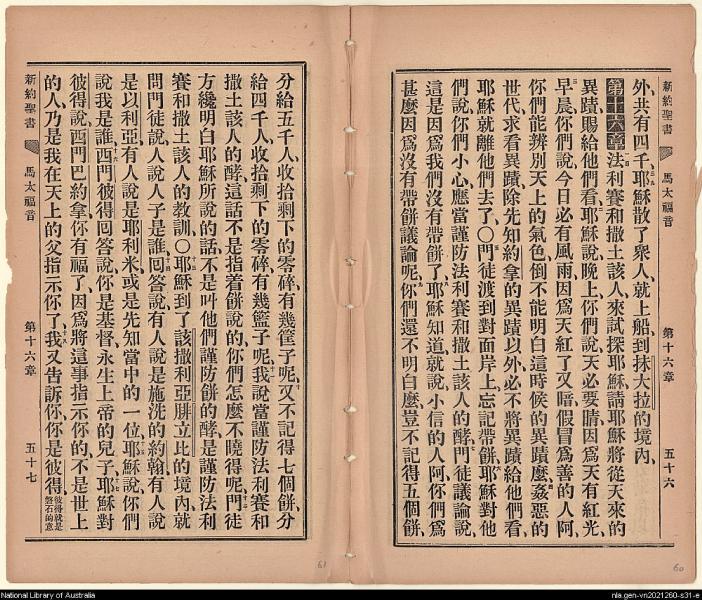 新約聖書 馬太福音 第十六章 五十六
外、共有四千、耶穌散了衆人、就上船到抹大拉的境內、
第十六章 法利賽和撒土該人來試探耶穌、請耶穌將從天來的
異蹟賜給他們看、耶穌說、晚上你們說、天必要晴、因爲天有紅光、
早晨你們說、今日必有風雨、因爲天紅了又暗、假冒爲善的人阿、
你們能辨別天上的氣色、倒不能明白這時候的異蹟麼、姦惡的
世代求看異蹟、除先知約拿的異蹟以外、必不將異蹟給他們看、
耶穌就離他們去了、〇門徒渡到對面岸上、忘記帶餅、耶穌對他
們說、你們小心、應當謹防法利賽和撒土該人的酵、門徒議論說、
這是因爲我們沒有帶餅了、耶穌知道、就說、小信的人阿、你們爲
甚麼因爲沒有帶餅議論呢、你們還不明白麼、豈不記得五個餅、
分給五千人、收拾剩下的零碎、有幾筐子呢、又不記得七個餅、分
給四千人、收拾剩下的零碎、有幾籃子呢、我說當謹防法利賽和
撒土該人的酵、這話不是指着餅說的、你們怎麼不曉得呢、門徒
方纔明白耶穌所說的話、不是叫他們謹防餅的酵、是謹防法利
賽和撒土該人的教訓、〇耶穌到了該撒利亞腓立比的境內、就
問門徒說、人說人子是誰、回答說、有人說是施洗的約翰、有人說
是以利亞、有人說是耶利米、或是先知當中的一位、耶穌說、你們
說我是誰、西門彼得回答說、你是基督、永生上帝的兒子、耶穌對
彼得說、西門巴約拿、你有福了、因爲將這事指示你的、不是世上
的人、乃是我在天上的父指示你了、我又告訴你、你是彼得、彼得就是磐石的意
新約聖書 馬太福音 第十六章 五十七
61
60
National Library of Australia
nla.gen-vn2021260-s31-e